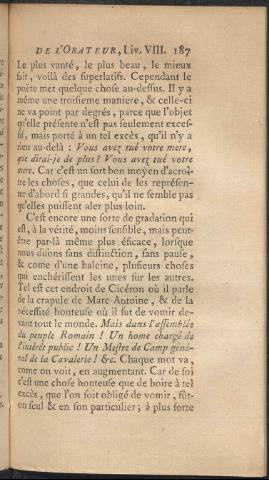 DE L'ORATEUR, Liv. VIII. 187
Le plus vanté, le plus beau, le mieux
fait, voilà des superlatifs. Cependant le
poëte met quelque chose au-dessus. Il y a
même une troisieme maniere, & celle-ci
ne va point par degrés, parce que l'objet
qu'elle présente n'est pas seulement exces-
sif, mais porté à un tel excès, qu'il n'y a
rien au-delà : Vous avez tué votre mere,
que dirai-je de plus? Vous avez tué votre
mere. Car c'est un sort bon moyen d'acroî-
tre les choses, que celui de les représen-
ter d'abord si grandes, qu'il ne semble pas
qu'elles puissent aler plus loin.
C'est encore une sorte de gradation qui
est, à la vérité, moins sensible, mais peut-
être par-là même plus éficace, lorsque
nous disons sans distinction, sans pause,
& come d'une haleine, plusieurs choses
qui enchérissent les unes sur les autres.
Tel est cet endroit de Cicéron où il parle
de la crapule de Marc-Antoine, & de la
nécessité honteuse où il fut de vomir de-
vant tout le monde. Mais dans l'assemblée
du peuple Romain! Un home chargé de
l'intérêt public! Un Mestre de Camp géné-
ral de la Cavalerie! &c. Chaque mot va,
come on voit, en augmentant. Car de soi
c'est une chose honteuse que de boire à tel
excès, que l'on soit obligé de vomir, fût-
on seul & en son particulier; à plus forte